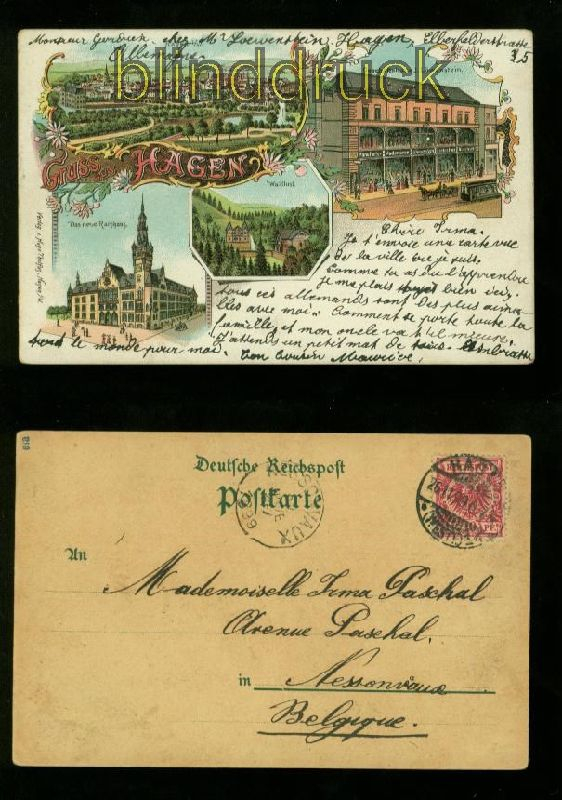 Monsieur chez Mr Loewenstein, Hagen, Elberfelderstrasse
35
Allemagne.
blinddruck
Gruss aus HAGEN
Waldlust
Das neue Rathaus.
Chère Irma.
Je t'envoie une carte vue
de la ville où je suis.
Comme tu as dû l'apprendre
Je me plais bien ici.
tous ces allemands sont des plus aima-
bles avec moi. Comment se porte toute la
famille, et mon oncle va t'il mieux.
J'attends un petit mot de Embrasse
tout le monde pour moi. Ton cousin Maurice,
Deutsche Reichspost
Postkarte
An
Mademoiselle Irma Paschal
Avenue Paschal,
in Nessonvaux
Belgique.